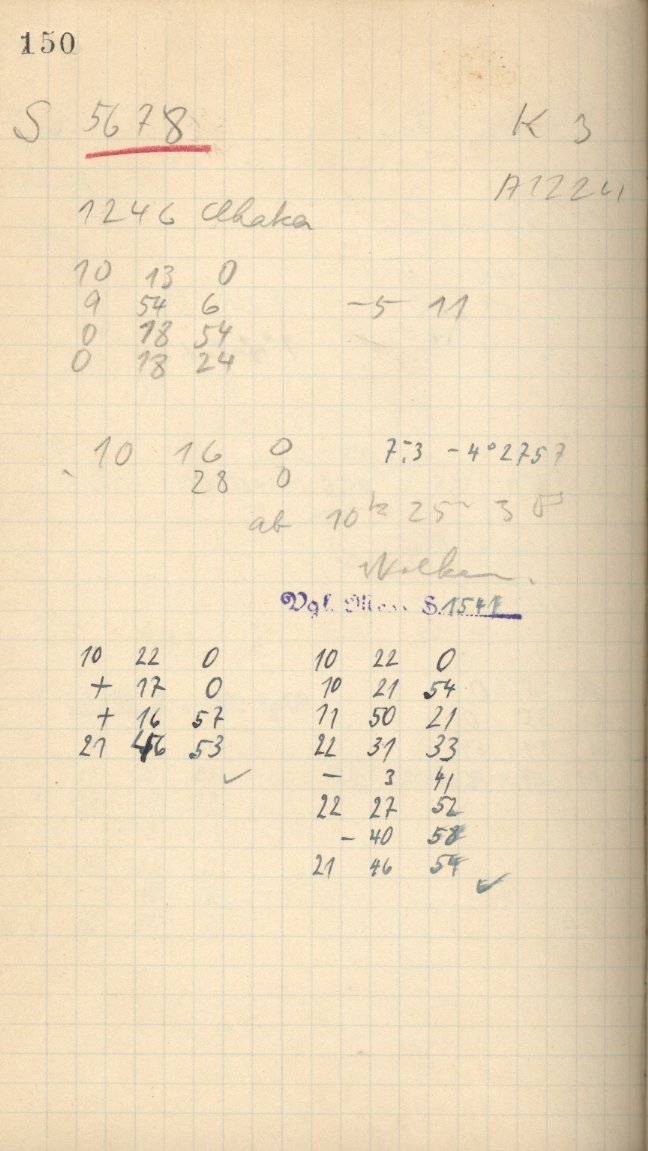 150
S 5678 K 3
A1224
1246 Chaka
10 13 0
9 54 6 -5 11
0 18 54
0 18 24
10 16 0 7.3 -4°2757
28 0
ab 10h 25m 30s
Wolken.
Vgl. S. 1547
10 22 0
+ 17 0
+ 16 57
21 46 53 ✓
10 22 0
10 21 54
11 50 21
22 31 33
- 3 41
22 27 52
- 40 58
21 46 54 ✓